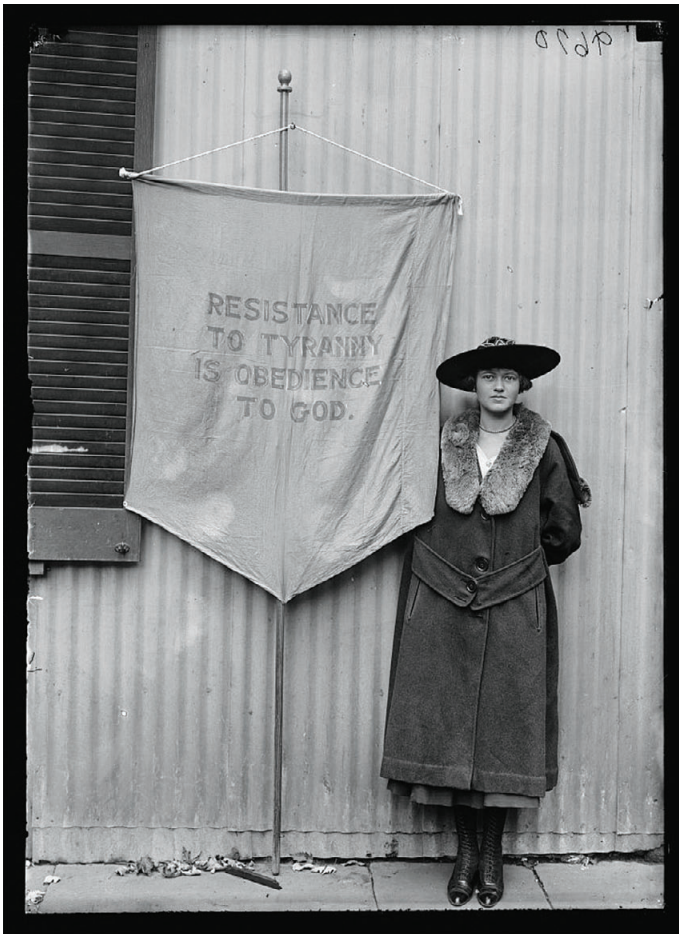 RESISTANCE
TO TYRANNY
IS OBEDIENCE
TO GOD.